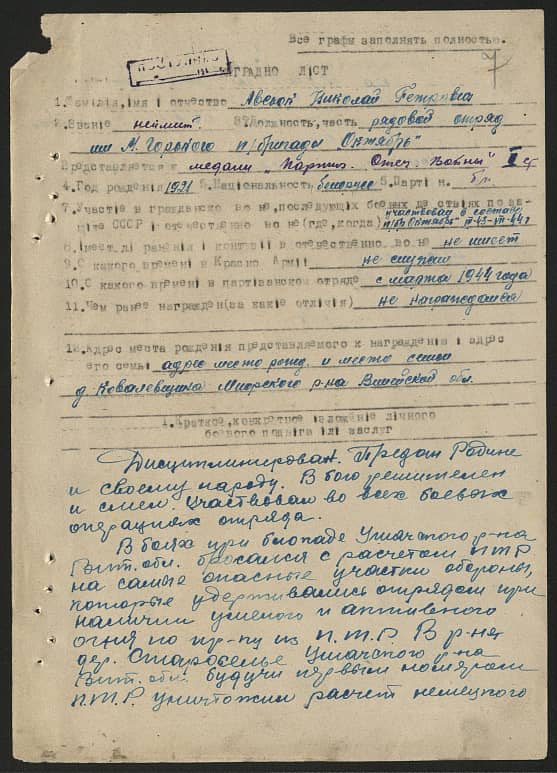 Все графы заполнять полностью.
7
НАГРАДНО ЛІСТ
1. Фамілія, імя і отчество Авсюк Николай Петрович
2. Звание неимит. 3. Должность, часть рядовой отряд
им М. Горького п/бригада Октябрь"
Представляется к медали „Партиз. Отеч. Войны" II ст
4. Год рождения 1921 5. Національность белорус 6. Парті н. б/п
7. Участіе в гражданско во не, последующих боевых де ствіях по за-
щіте СССР і отечественно во не (где, когда) участвовал в составе
п/бр Октября"
8. імеет лі раненія і контузіі в отечественно во не не имеет
9. С какого времені в Красно Армії не служил
10. С какого времені в партізанском отряде с марта 1944 года
11. Чем ранее награжден (за какіе отлічія) не награждался
12. Адрес места рождения представляемого к награжденію і адрес
его семьі адрес место рожд. и место семьи
д. Ковалевщина Миорского р-на Вилейской обл.
1. Краткое, конкретное ізложеніе лічного
боевого подвіга ілі заслуг
Дисциплинирован. Предан Родине
и своему народу. В бою решителен
и смел. Участвовал во всех боевых
операциях отряда.
В боях при блокаде Ушачского р-на
Вит. обл. бросался с расчетом П.Т.Р.
на самые опасные участки обороны,
которые удерживались отрядом при
наличии умелого и активного
огня по пр-ку из П.Т.Р. В р-не
дер. Старовелье Ушачского р-на
Вит. обл. будучи первым номером
П.Т.Р. уничтожил расчет немецкого